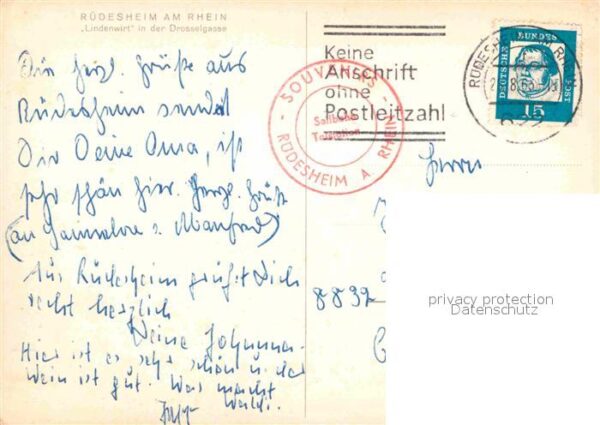 RÜDESHEIM AM RHEIN
„Lindenwirt" in der Drosselgasse
Die herzl. Grüße aus
Rüdesheim sendet
Dir Deine Oma, ist
sehr schön hier. Herzl. Grüße
(an Hannelore u. Manfred)
Aus Rüdesheim grüßt Dich
recht herzlich
Deine Johanna.
Hier ist es sehr schön u. der
Wein ist gut. Was macht
Keine
Anschrift
ohne
Postleitzahl
SOUVENIRS
RÜDESHEIM A RHEIN
DEUTSCHE BUNDESPOST
15
Herrn
8832
privacy protection
Datenschutz